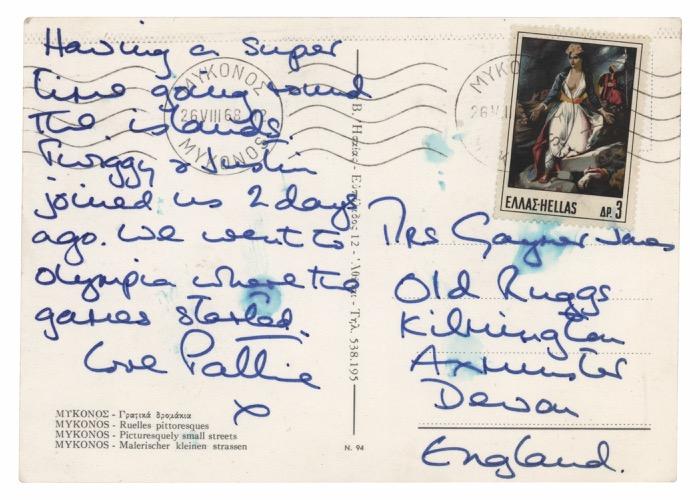 Having a super
time going round
the islands.
Twiggy & Justin
joined us 2 days
ago. We went to
Olympia where the
games started.
Love Pattie
x
ΜΥΚΟΝΟΣ
26VIII68
ΜΥΚΟΝΟΣ
ΕΛΛΑΣ-HELLAS ΔΡ. 3
Mrs Gayner Jones
Old Ruggs
Kilmington
Axminster
Devon
England.
12 - Ἀθῆναι - Τηλ. 538.195
ΜΥΚΟΝΟΣ - Γραφικά δρομάκια
MYKONOS - Ruelles pittoresques
MYKONOS - Picturesquely small streets
MYKONOS - Malerischer kleinen strassen
N. 94